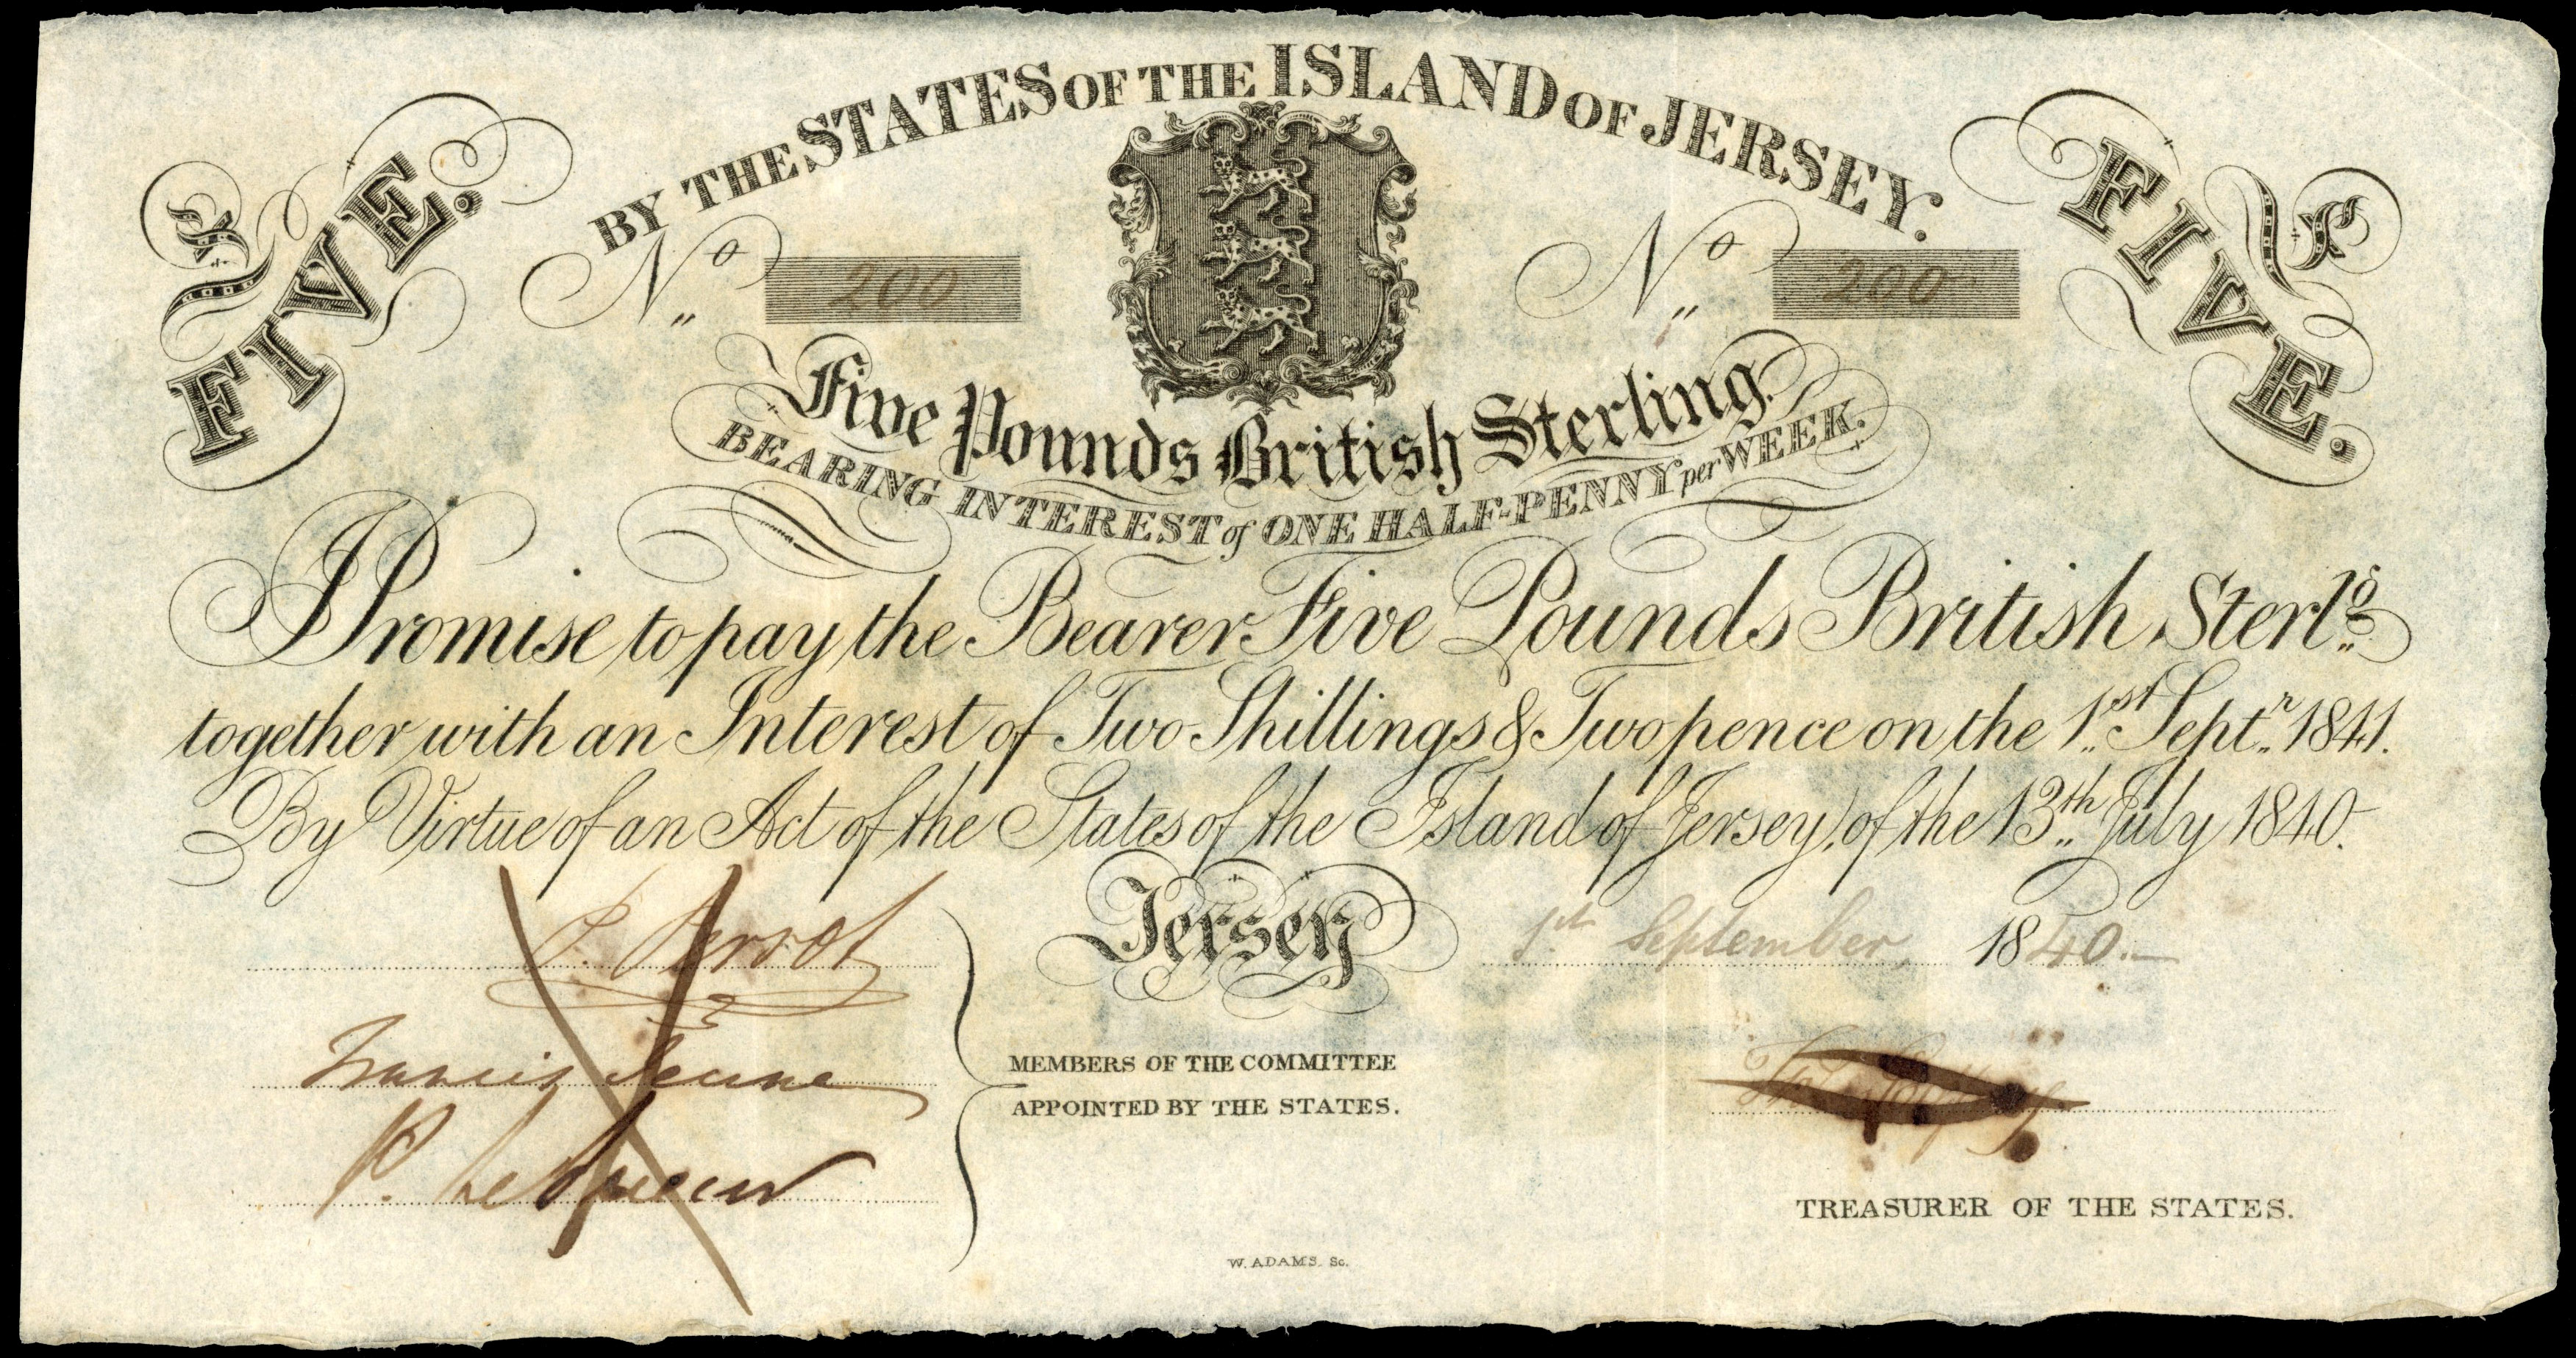 BY THE STATES OF THE ISLAND OF JERSEY.
£ FIVE.
£ FIVE.
No 200
No 200
Five Pounds British Sterling.
BEARING INTEREST of ONE HALF-PENNY per WEEK.
I Promise to pay the Bearer Five Pounds British Sterlg.
together with an Interest of Two Shillings & Twopence on the 1st Septr. 1841.
By Virtue of an Act of the States of the Island of Jersey, of the 13th July 1840.
Jersey 1st September, 1840.
P. Perrot
Francis Jeune
P.
MEMBERS OF THE COMMITTEE
APPOINTED BY THE STATES.
TREASURER OF THE STATES.
W. ADAMS. Sc.